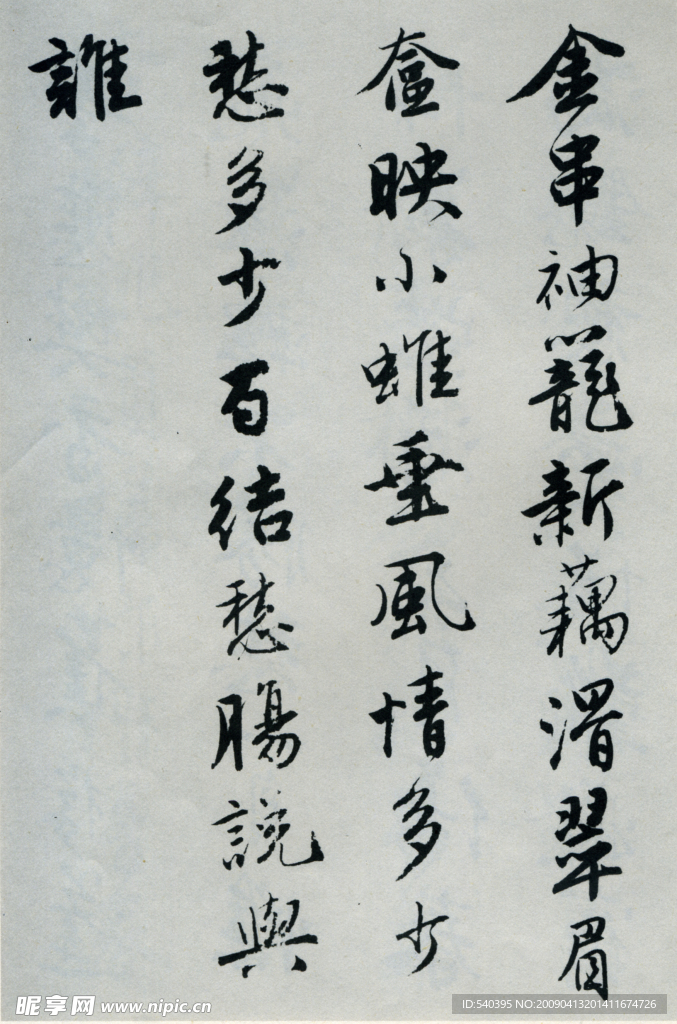 金串袖籠新藕滑翠眉
奩映小垂風情多少
愁多少百結愁腸說與
誰
昵享网 www.nipic.cn
ID:540395 NO:20090413201411674726